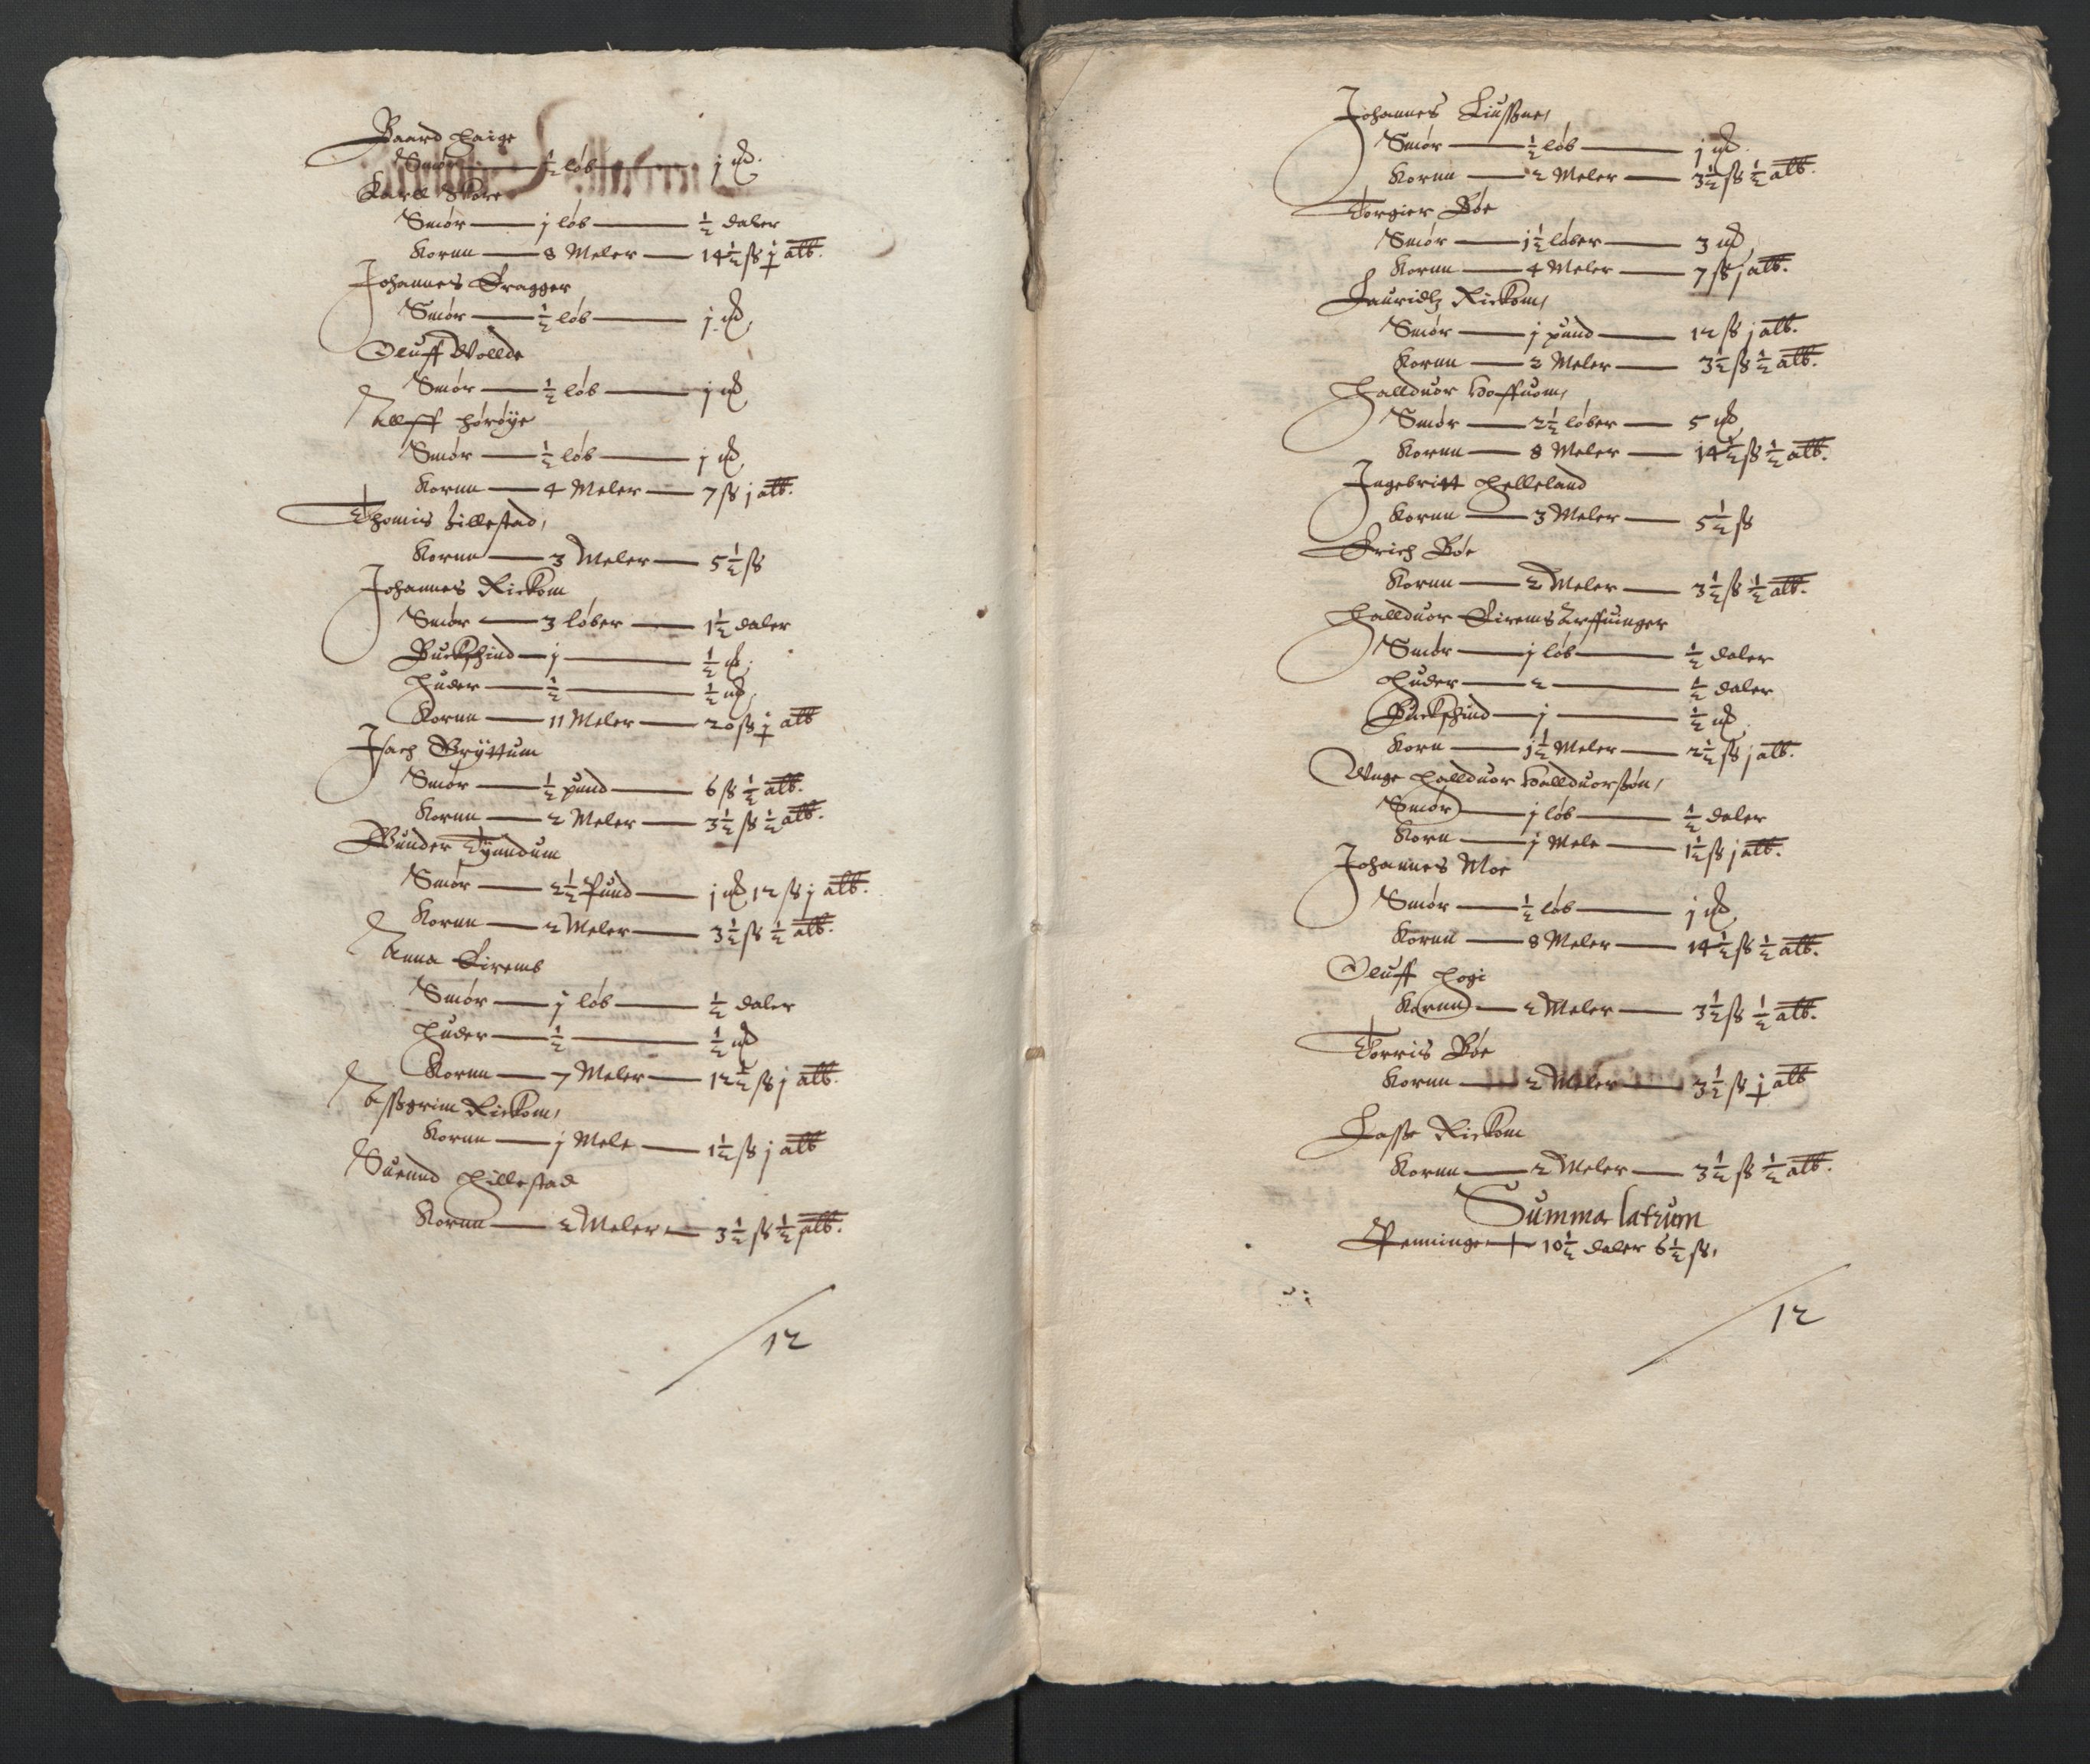 Baard Haige
Smør — ½ løb — j mk.
Karll Skore
Smør — j løb — ½ daler
Kornn — 8 Meler — 14½ ß j alb.
Johannes Dragger
Smør — ½ løb — j mk,
Oluff Wollde
Smør — ½ løb — j mk
Alleff Hørøye
Smør — ½ løb — j mk,
Kornn — 4 Meler — 7 ß j alb.
Thomis Hillestad,
Kornn — 3 Meler — 5½ ß
Johannes Rickom
Smør — 3 løber — 1½ daler
Buckskind — j — ½ mk,
Huder — ½ — ½ mk,
Kornn — 11 Meler — 20 ß j alb
Isach Gryttum
Smør — ½ pund — 6 ß ½ alb.
Kornn — 2 Meler — 3½ ß ½ alb.
Gunder Tynndum
Smør — 2½ Pund — j mk 12 ß j alb.
Kornn — 2 Meler — 3½ ß ½ alb.
Anna Eirems
Smør — j løb — ½ daler
Huder — ½ — ½ mk
Kornn — 7 Meler — 12½ ß j alb.
Assgrim Rickom,
Kornn — j Mele — 1½ ß j alb
Suennd Hillestad
Kornn — 2 Meler — 3½ ß ½ alb.
12
Johannes Liussne,
Smør — ½ løb — j mk.
Kornn — 2 Meler — 3½ ß ½ alb.
Torgier Bøe
Smør — j½ løber — 3 mk,
Kornn — 4 Meler — 7 ß j alb.
Lauridtz Rickom,
Smør — j pund — 12 ß j alb.
Kornn — 2 Meler — 3½ ß ½ alb.
Hallduor Hoffuom,
Smør — 2½ løber — 5 mk,
Kornn — 8 Meler — 14½ ß ½ alb.
Ingebritt Helleland
Kornn — 3 Meler — 5½ ß
Erich Bøe
Kornn — 2 Meler — 3½ ß ½ alb.
Hallduor Eirems Arffuinger
Smør — j løb — ½ daler
Huder — 2 — ½ daler
Buckskind — j — ½ mk
Korn — j½ Meler — 2½ ß j alb.
Unge Hallduor Hallduorssøn,
Smør — j løb — ½ daler
Korn — j Mele — 1½ ß j alb.
Johannes Moe
Smør — ½ løb — j mk,
Kornn — 8 Meler — 14½ ß ½ alb.
Oluff Hogi
Kornn — 2 Meler — 3½ ß ½ alb.
Torris Bøe
Kornn — 2 Meler — 3½ ß j alb
Lasse Rickom
Kornn — 2 Meler — 3½ ß ½ alb.
Summa latrum
Penninge — 10½ daler 6½ ß,
12